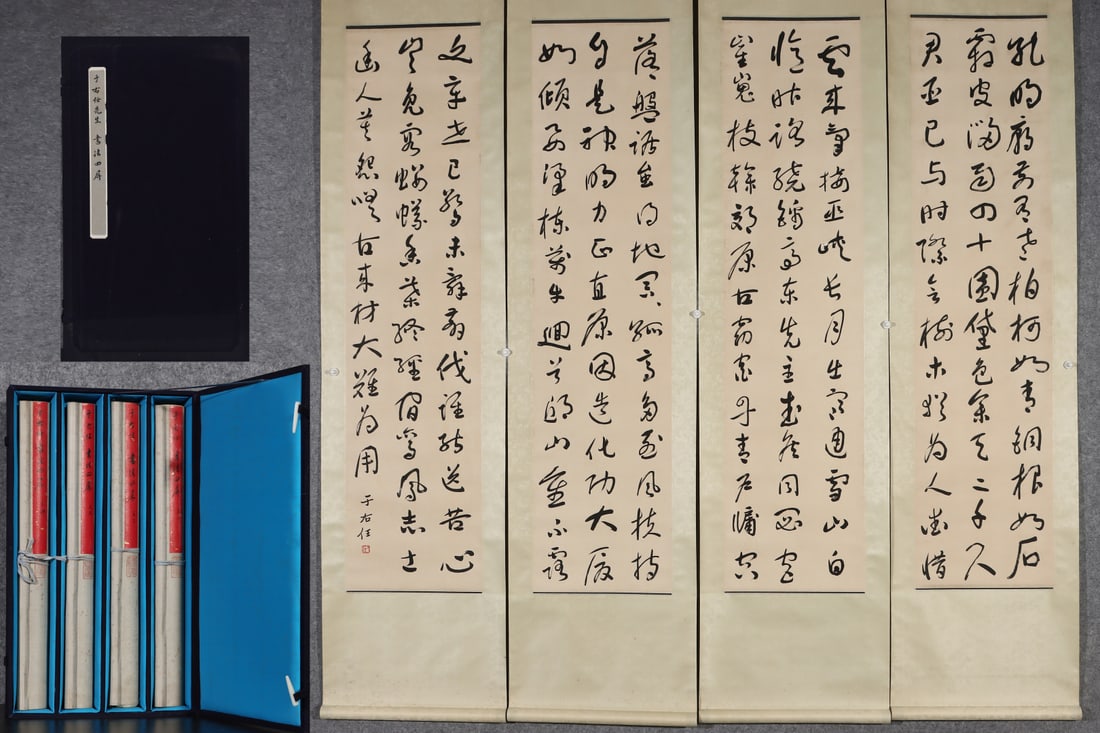 于右任先生 書法四屏
孔明廟前有老柏柯如青銅根如石
霜皮溜雨四十圍黛色參天二千尺
君臣已与時際会樹木猶為人愛惜
雲來氣接巫峽長月出寒通雪山白
憶昨路繞錦亭東先主武侯同閟宮
崔嵬枝幹郊原古窈窕丹青戶牖空
落落盤踞雖得地冥冥孤高多烈風扶持
自是神明力正直原因造化功大廈
如傾要梁棟萬牛迴首丘山重不露
文章世已驚未辭翦伐誰能送苦心
豈免容螻蟻香葉終經宿鸞鳳志士
幽人莫怨嗟古來材大難為用
于右任
于右任 書法四屏
于右任 書法四屏